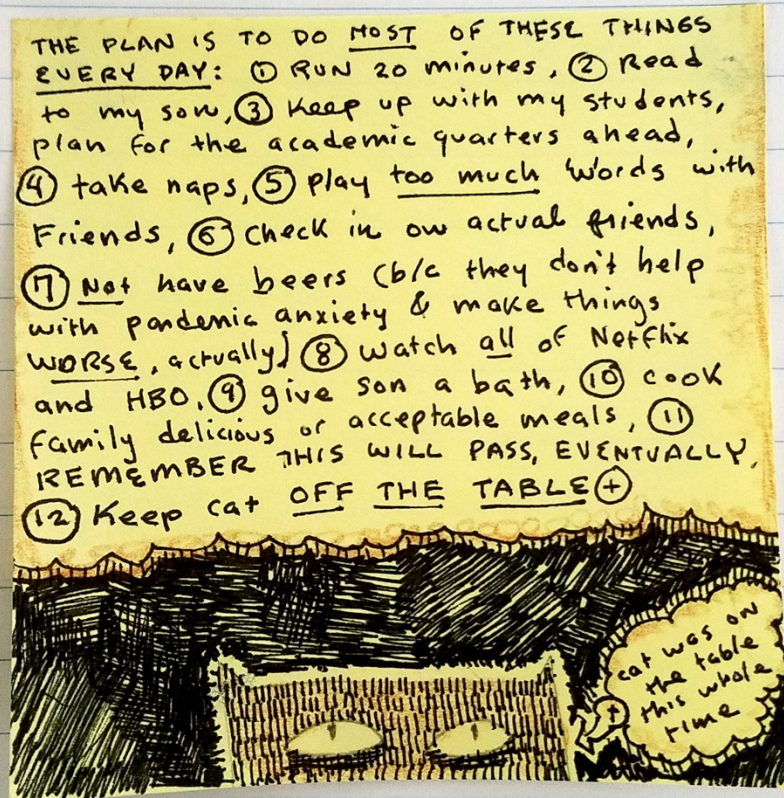 THE PLAN IS TO DO MOST OF THESE THINGS
EVERY DAY: ① RUN 20 minutes, ② Read
to my son, ③ Keep up with my students,
plan for the academic quarters ahead,
④ take naps, ⑤ Play too much Words with
Friends, ⑥ Check in ow actual friends,
⑦ Not have beers (b/c they don't help
with pandemic anxiety & make things
WORSE, actually) ⑧ Watch all of Netflix
and HBO, ⑨ give son a bath, ⑩ cook
family delicious or acceptable meals, ⑪
REMEMBER THIS WILL PASS, EVENTUALLY,
⑫ Keep cat OFF THE TABLE +
cat was on
the table
+ this whole
time